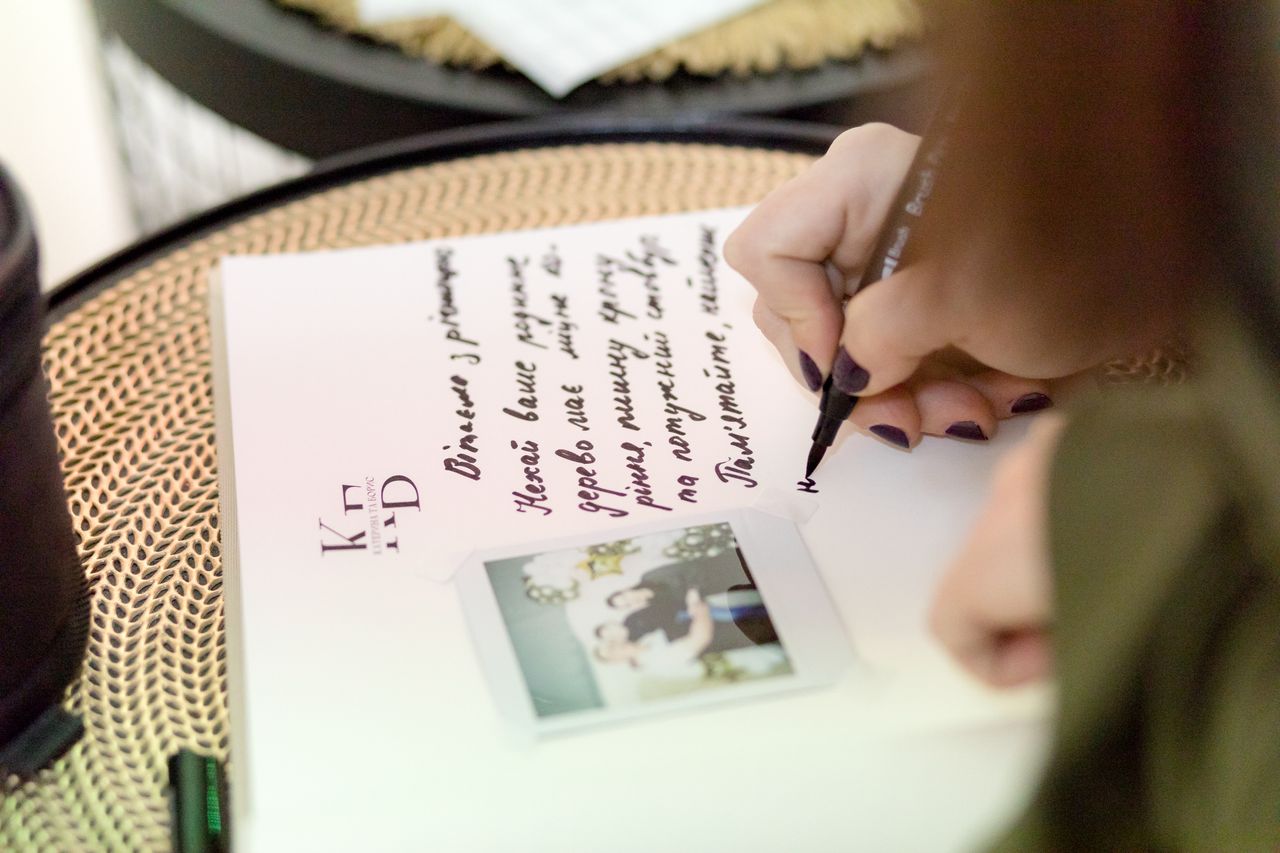 КАТЕРИНА ТА БОРИС
Вітаємо з річницею
Нехай ваше родинне
дерево має міцне ко-
ріння, пишну крону
та потужний стовбур
Пам'ятайте,
н
Brush